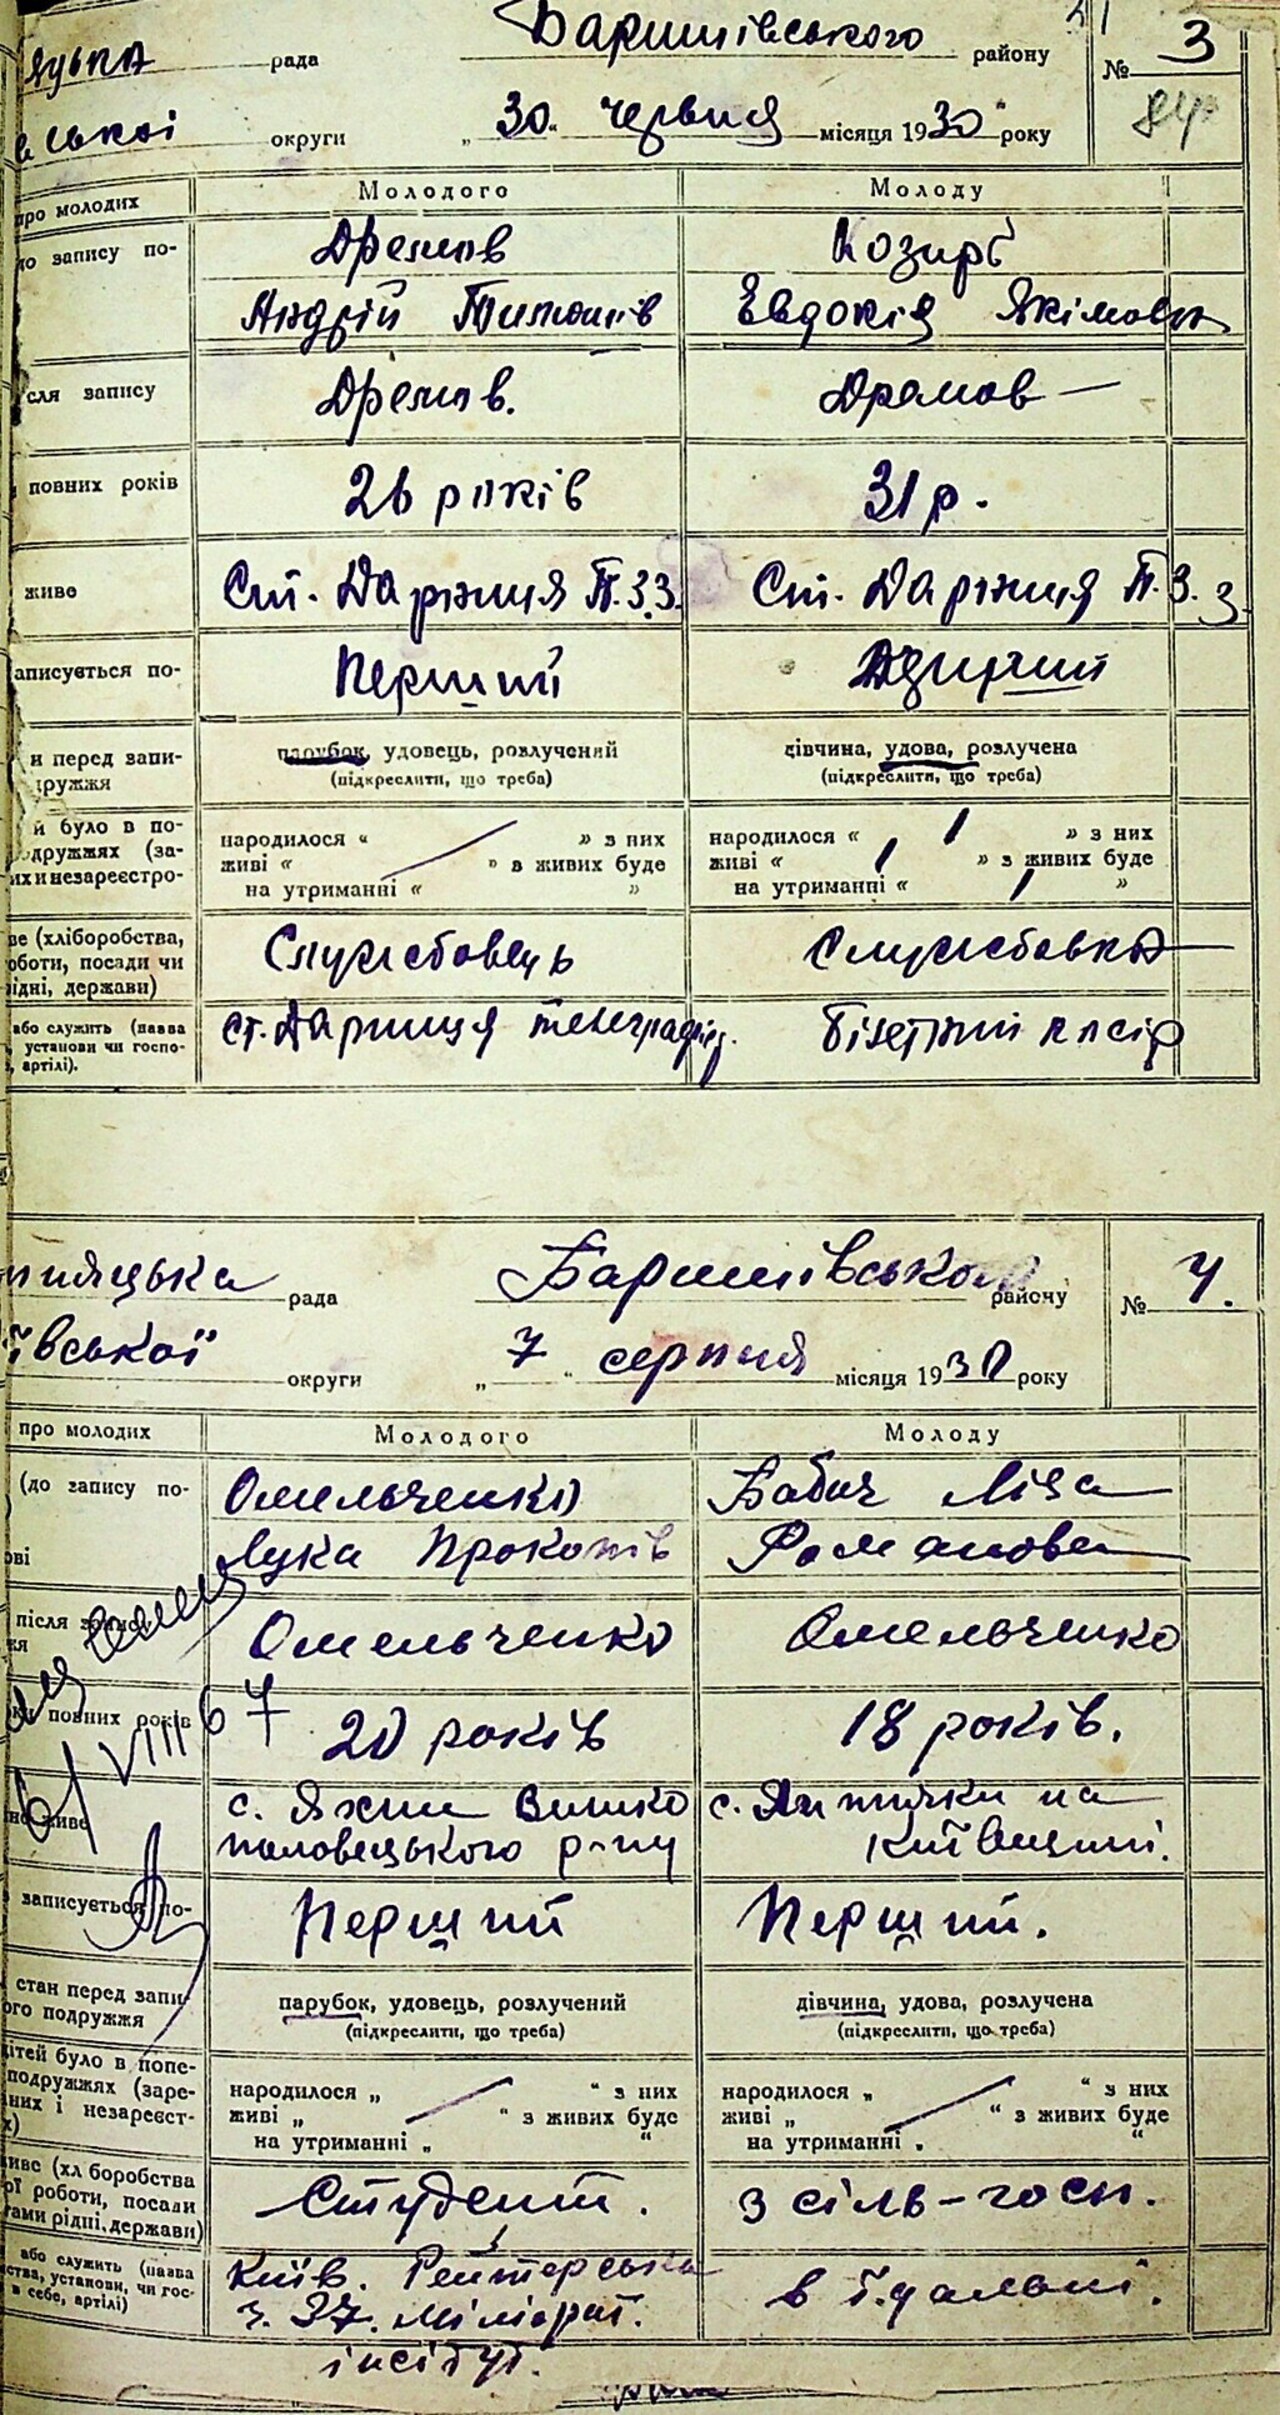 Баришівського
рада району № 3
ської округи „ 30 “ червня місяця 1930 року
про молодих Молодого Молоду
до запису по- Дремов Козирь
Андрій Тимошів Евдокія Якімовн
сля запису Дремов. Дремов —
повних років 26 років 31 р.
живе Ст. Дарниця П.З.З. Ст. Дарниця П.З.З.
аписується по- Перший Другий
и перед запи- парубок, удовець, розлучений дівчина, удова, розлучена
дружжя (підкреслити, що треба) (підкреслити, що треба)
й було в по- народилося “ » з них народилося “ 1 » з них
дружжях (за- живі “ » з живих буде живі “ 1 » з живих буде
их и незареєстро- на утриманні “ » на утриманні “ 1 »
ве (хліборобства, Служебовець Служебовка
оботи, посади чи
рідні, держави)
або служить (назва ст. Дарниця телеграфіс. Білетний касір
установи чи госпо-
, артілі).
ницька рада Баришівського району № 4.
ївської округи „ 7 “ серпня місяця 1930 року
про молодих Молодого Молоду
(до запису по- Омельченко Бабич Ліза
ові Лука Прокопів Романовн
після Омельченко Омельченко
повних років 20 років 18 років.
VIII 67
живе с. Яхни Винко с. на
половецького р-ну Київщині.
записується по- Перший Перший.
стан перед запи- парубок, удовець, розлучений дівчина, удова, розлучена
ого подружжя (підкреслити, що треба) (підкреслити, що треба)
дітей було в попе- народилося „ “ з них народилося „ “ з них
подружжях (заре- живі „ “ з живих буде живі „ “ з живих буде
них і незареєст- на утриманні „ “ на утриманні „ “
х)
живе (хл боробства Студент. з сіль-госп.
ої роботи, посади
тами рідні, держави)
або служить (назва Київ. Рейтерська в ї.дальні.
ства, установи, чи гос- ч. 37. Меліорат.
в себе, артілі)
інсітут.